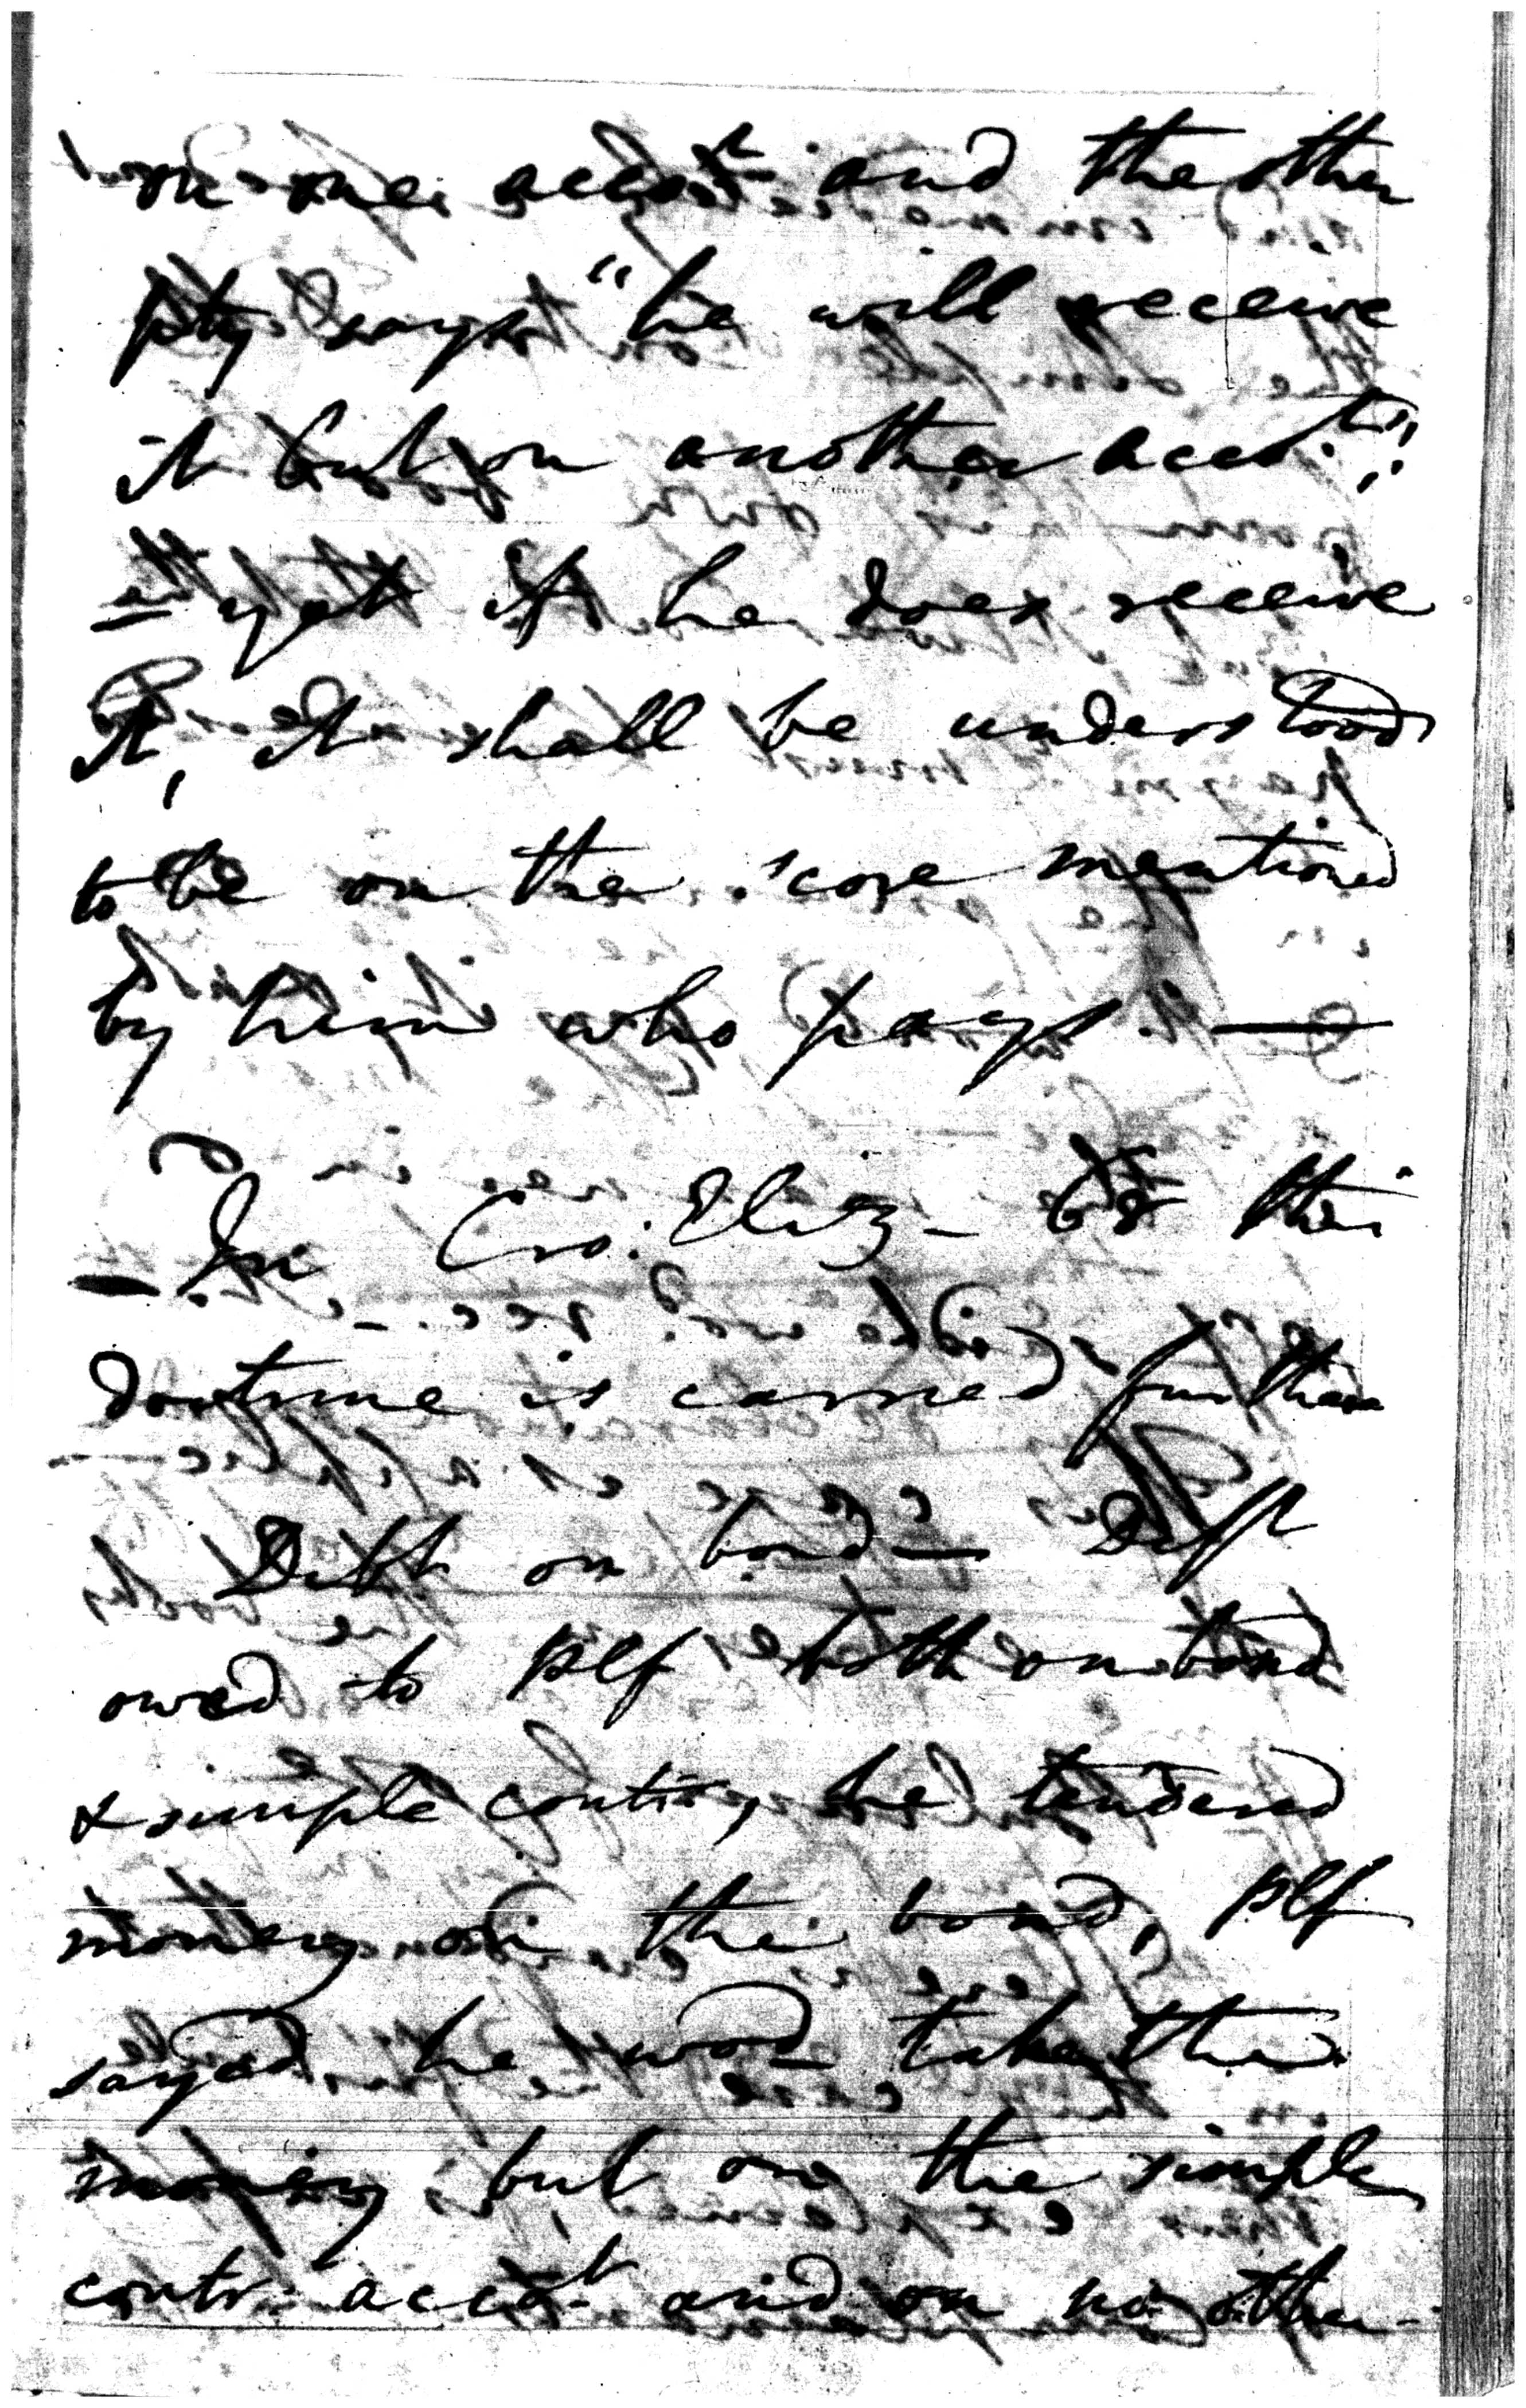 on one accot and the other
pty says "he will receive
it but on another accot";
— yet if he does receive
it, it shall be understood
to be on the score mentioned
by him who pays. —
— In Cro. Eliz — 68 this
doctrine is carried further
Debt on bond — Deft
owed to plf both on bond
& simple contr, he tendered
money on the bond, plf
sayed he wod take the
money, but on the simple
contr: accot and on no other —